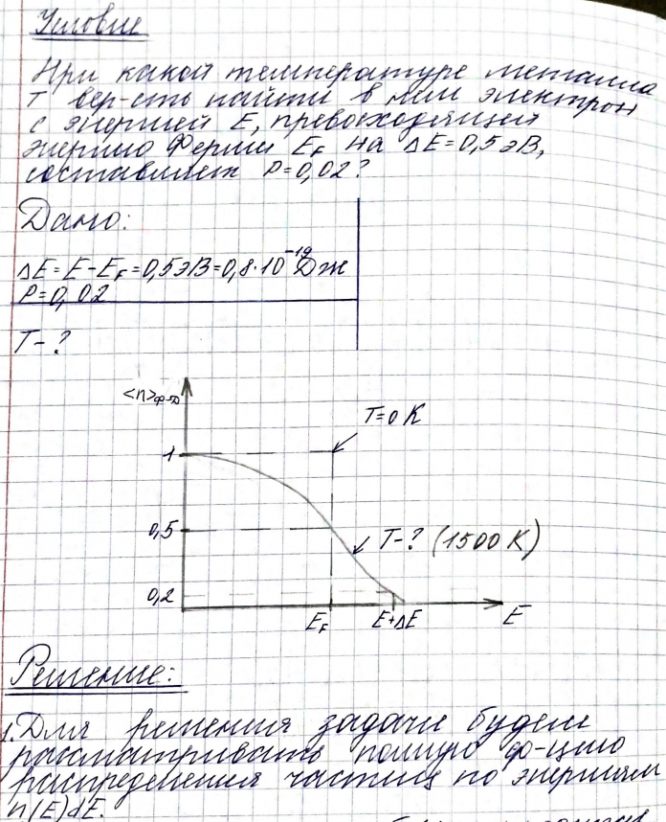 Условие
При какой температуре металла
T вер-сть найти в нём электрон
с энергией E, превосходящей
энергию Ферми E_F на ΔE=0,5эВ,
составляет P=0,02?
Дано:
ΔE=E-E_F=0,5эВ=0,8·10^-19 Дж
P=0,02
T-?
<n>ф-д
T=0 K
1
0,5
T-? (1500 K)
0,2
E_F
E+ΔE
E
Решение:
1. Для решения задачи будем
рассматривать полную ф-цию
распределения частиц по энергиям
n(E)dE.